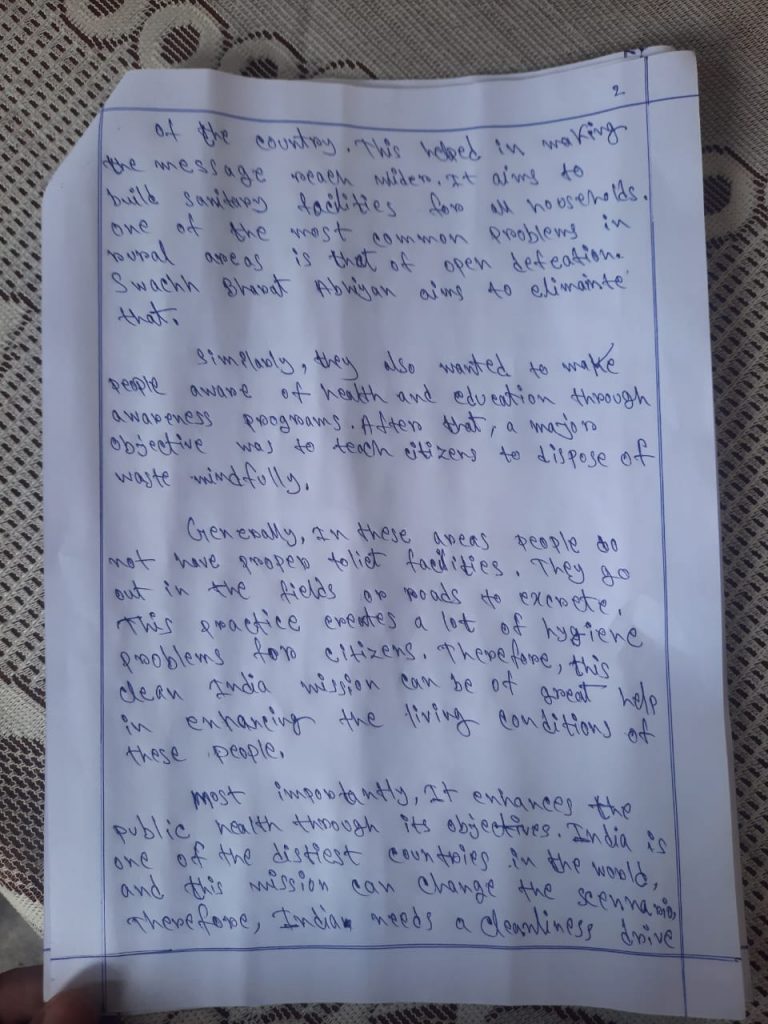 2
of the country. This helped in making
the message reach wider. It aims to
build sanitary facilities for all households.
one of the most common problems in
rural areas is that of open defeation.
Swachh Bharat Abhiyan aims to elimainte
that.
Similarly, they also wanted to make
people aware of health and education through
awareness programs. After that, a major
objective was to teach citizens to dispose of
waste mindfully.
Generally, In these areas people do
not have proper toliet facilities. They go
out in the fields or roads to excrete.
This practice creates a lot of hygiene
problems for citizens. Therefore, this
clean India mission can be of great help
in enhancing the living conditions of
these people.
most importantly, It enhances the
public health through its objectives. India is
one of the distiest countries in the world,
and this mission can change the scennario,
Therefore, India needs a cleanliness drive